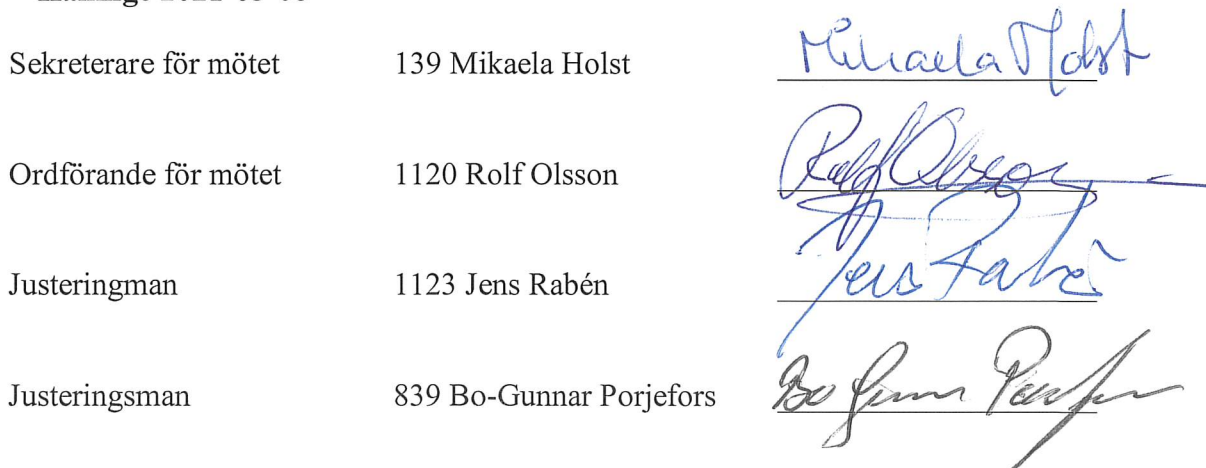 Sekreterare för mötet 139 Mikaela Holst Mikaela Holst
Ordförande för mötet 1120 Rolf Olsson Rolf Olsson
Justeringman 1123 Jens Rabén Jens Rabén
Justeringsman 839 Bo-Gunnar Porjefors Bo Gunnar